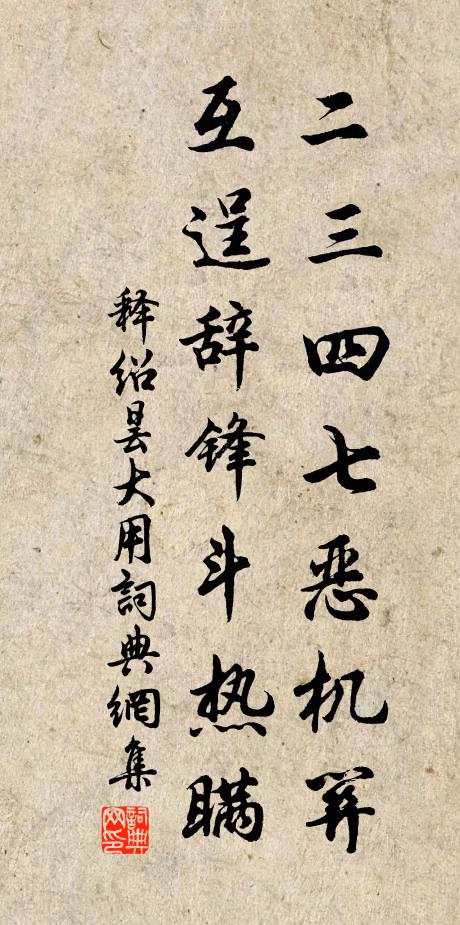 二三四七恶机笄
互逞辞锋斗热瞒
释绍昙大用詞典網集
詞典网印